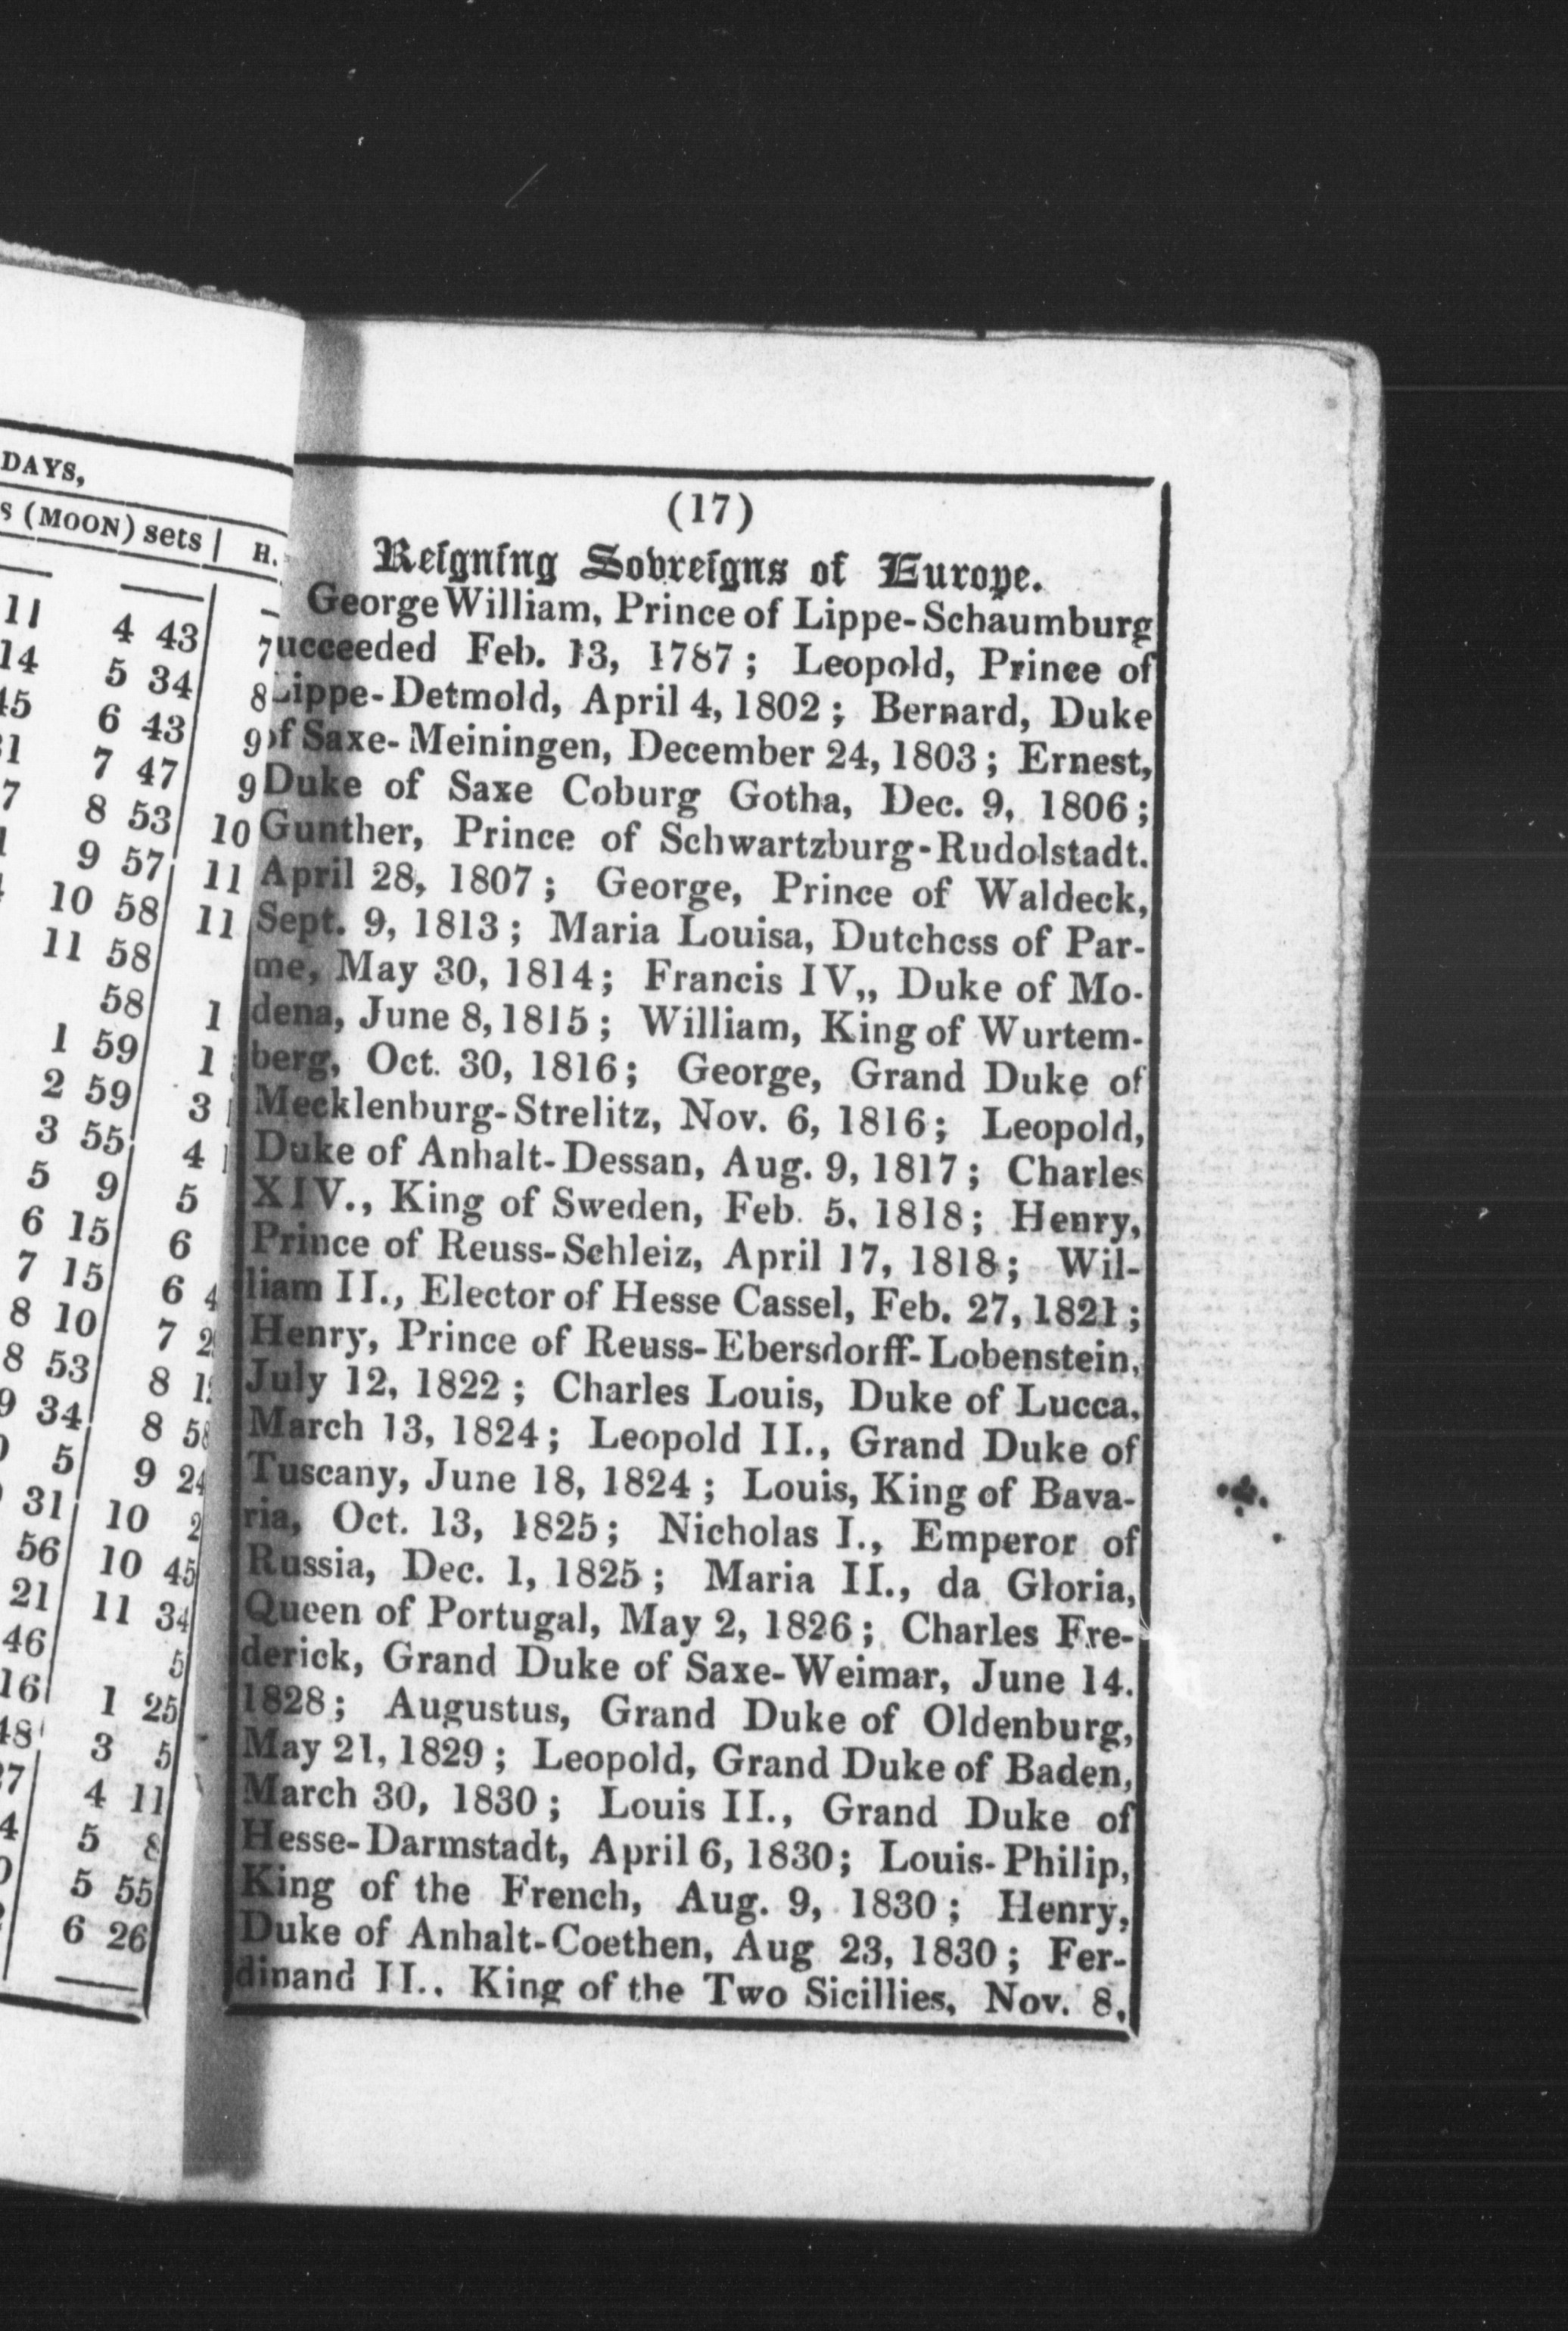 DAYS,
s (MOON) sets | H.
11 4 43 7
14 5 34 8
45 6 43 9
31 7 47 9
7 8 53 10
9 57 11
10 58 11
11 58
58 1
1 59 1
2 59 3
3 55 4
5 9 5
6 15 6
7 15 6 4
8 10 7 2
8 53 8 1
9 34 8 58
5 9 24
31 10 2
56 10 45
21 11 34
46 5
16 1 25
48 3 5
37 4 11
4 5 8
5 55
6 26
(17)
Reigning Sovreigns of Europe.
George William, Prince of Lippe-Schaumburg
ucceeded Feb. 13, 1787; Leopold, Prince of
Lippe-Detmold, April 4, 1802; Bernard, Duke
of Saxe-Meiningen, December 24, 1803; Ernest,
Duke of Saxe Coburg Gotha, Dec. 9, 1806;
Gunther, Prince of Schwartzburg-Rudolstadt.
April 28, 1807; George, Prince of Waldeck,
Sept. 9, 1813; Maria Louisa, Dutchess of Par-
me, May 30, 1814; Francis IV,, Duke of Mo-
dena, June 8, 1815; William, King of Wurtem-
berg, Oct. 30, 1816; George, Grand Duke of
Mecklenburg-Strelitz, Nov. 6, 1816; Leopold,
Duke of Anhalt-Dessan, Aug. 9, 1817; Charles
XIV., King of Sweden, Feb. 5, 1818; Henry,
Prince of Reuss-Schleiz, April 17, 1818; Wil-
liam II., Elector of Hesse Cassel, Feb. 27, 1821;
Henry, Prince of Reuss-Ebersdorff-Lobenstein,
July 12, 1822; Charles Louis, Duke of Lucca,
March 13, 1824; Leopold II., Grand Duke of
Tuscany, June 18, 1824; Louis, King of Bava-
ria, Oct. 13, 1825; Nicholas I., Emperor of
Russia, Dec. 1, 1825; Maria II., da Gloria,
Queen of Portugal, May 2, 1826; Charles Fre-
derick, Grand Duke of Saxe-Weimar, June 14.
1828; Augustus, Grand Duke of Oldenburg,
May 21, 1829; Leopold, Grand Duke of Baden,
March 30, 1830; Louis II., Grand Duke of
Hesse-Darmstadt, April 6, 1830; Louis-Philip,
King of the French, Aug. 9, 1830; Henry,
Duke of Anhalt-Coethen, Aug 23, 1830; Fer-
dinand II., King of the Two Sicillies, Nov. 8,